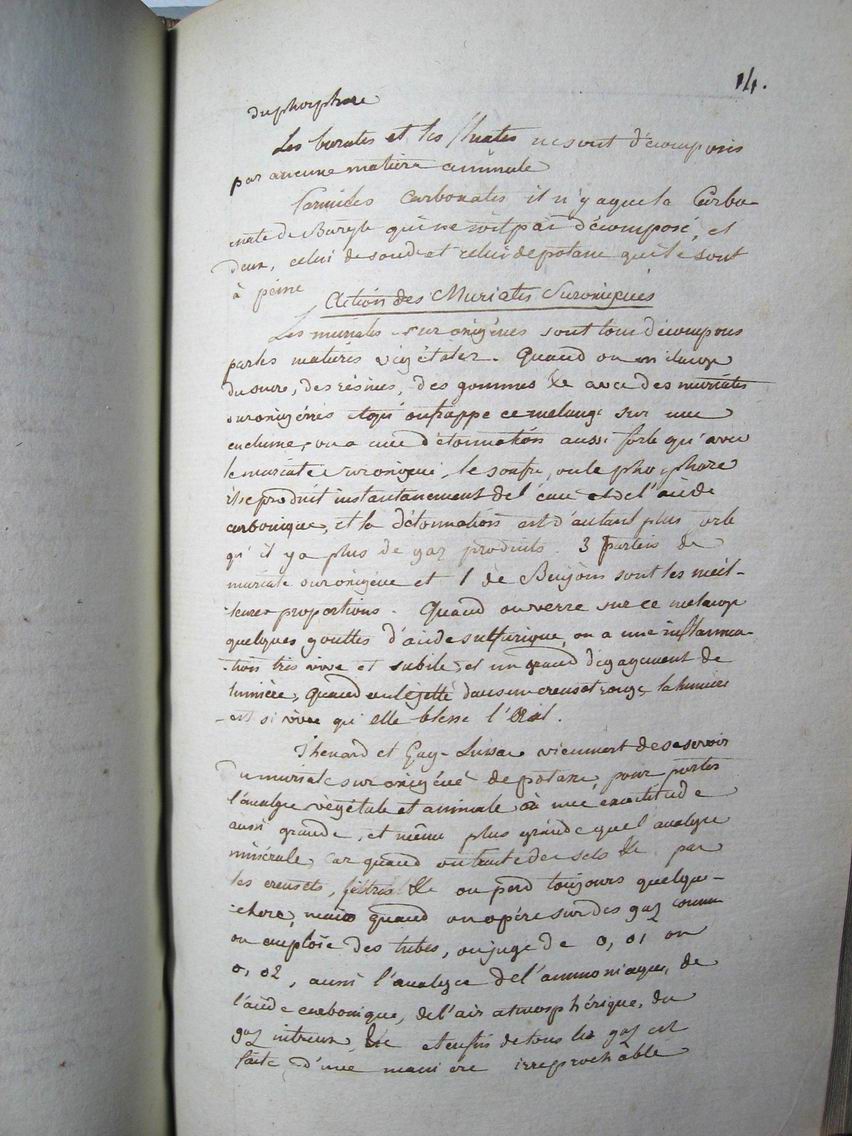 14.
du phosphore
Les borates et les fluates ne sont décomposés
par aucune matière animale
Parmi les carbonates il n'y a que le Carbo-
nate de Baryte qui ne soit pas décomposé, et
deux, celui de soude et celui de potasse qui le sont
à peine
Action des Muriates Suroxigénés
Les muriates suroxigénés sont tous décomposés
par les matières végétales. Quand on mélange
du sucre, des résines, des gommes &c avec des muriates
suroxigénés et qu'on frappe ce mélange sur une
enclume, on a une détonnation aussi forte qu'avec
le muriate suroxigéné, le soufre, ou le phosphore
il se produit instantanement de l'eau et de l'acide
carbonique, et la détonnation est d'autant plus forte
qu'il y a plus de gaz produits. 3 parties de
muriate suroxigéné et 1 de Benjoin sont les meil-
leures proportions. Quand on verse sur ce mélange
quelques gouttes d'acide sulfurique, on a une inflamma-
tion très vive et subite, et un grand dégagement de
lumière, quand on le jette dans un creuset rouge la lumière
est si vive qu'elle blesse l'œil.
Thenard et Gay-Lussac viennent de se servir
du muriate suroxigéné de potasse, pour porter
l'analyse végétale et animale à une exactitude
aussi grande, et même plus grande que l'analyse
minérale, car quand on traite des sels &c par
les creusets, filtres &c on perd toujours quelque-
chose, mais quand on opère sur des gaz comme
on emploie des tubes, on juge de 0,01 ou
0,02, aussi l'analyse de l'ammoniaque, de
l'acide carbonique, de l'air atmosphérique, du
gaz nitreux, &c et enfin de tous les gaz est
faite d'une manière irreprochable